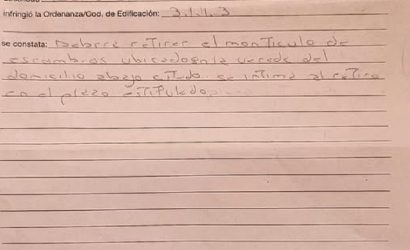 Infringió la Ordenanza/Cod. de Edificación: 3.1.1.3
se constata: Deberá retirar el montículo de
escombros ubicado en la vereda del
domicilio abajo citado se intima al retiro
en el plazo